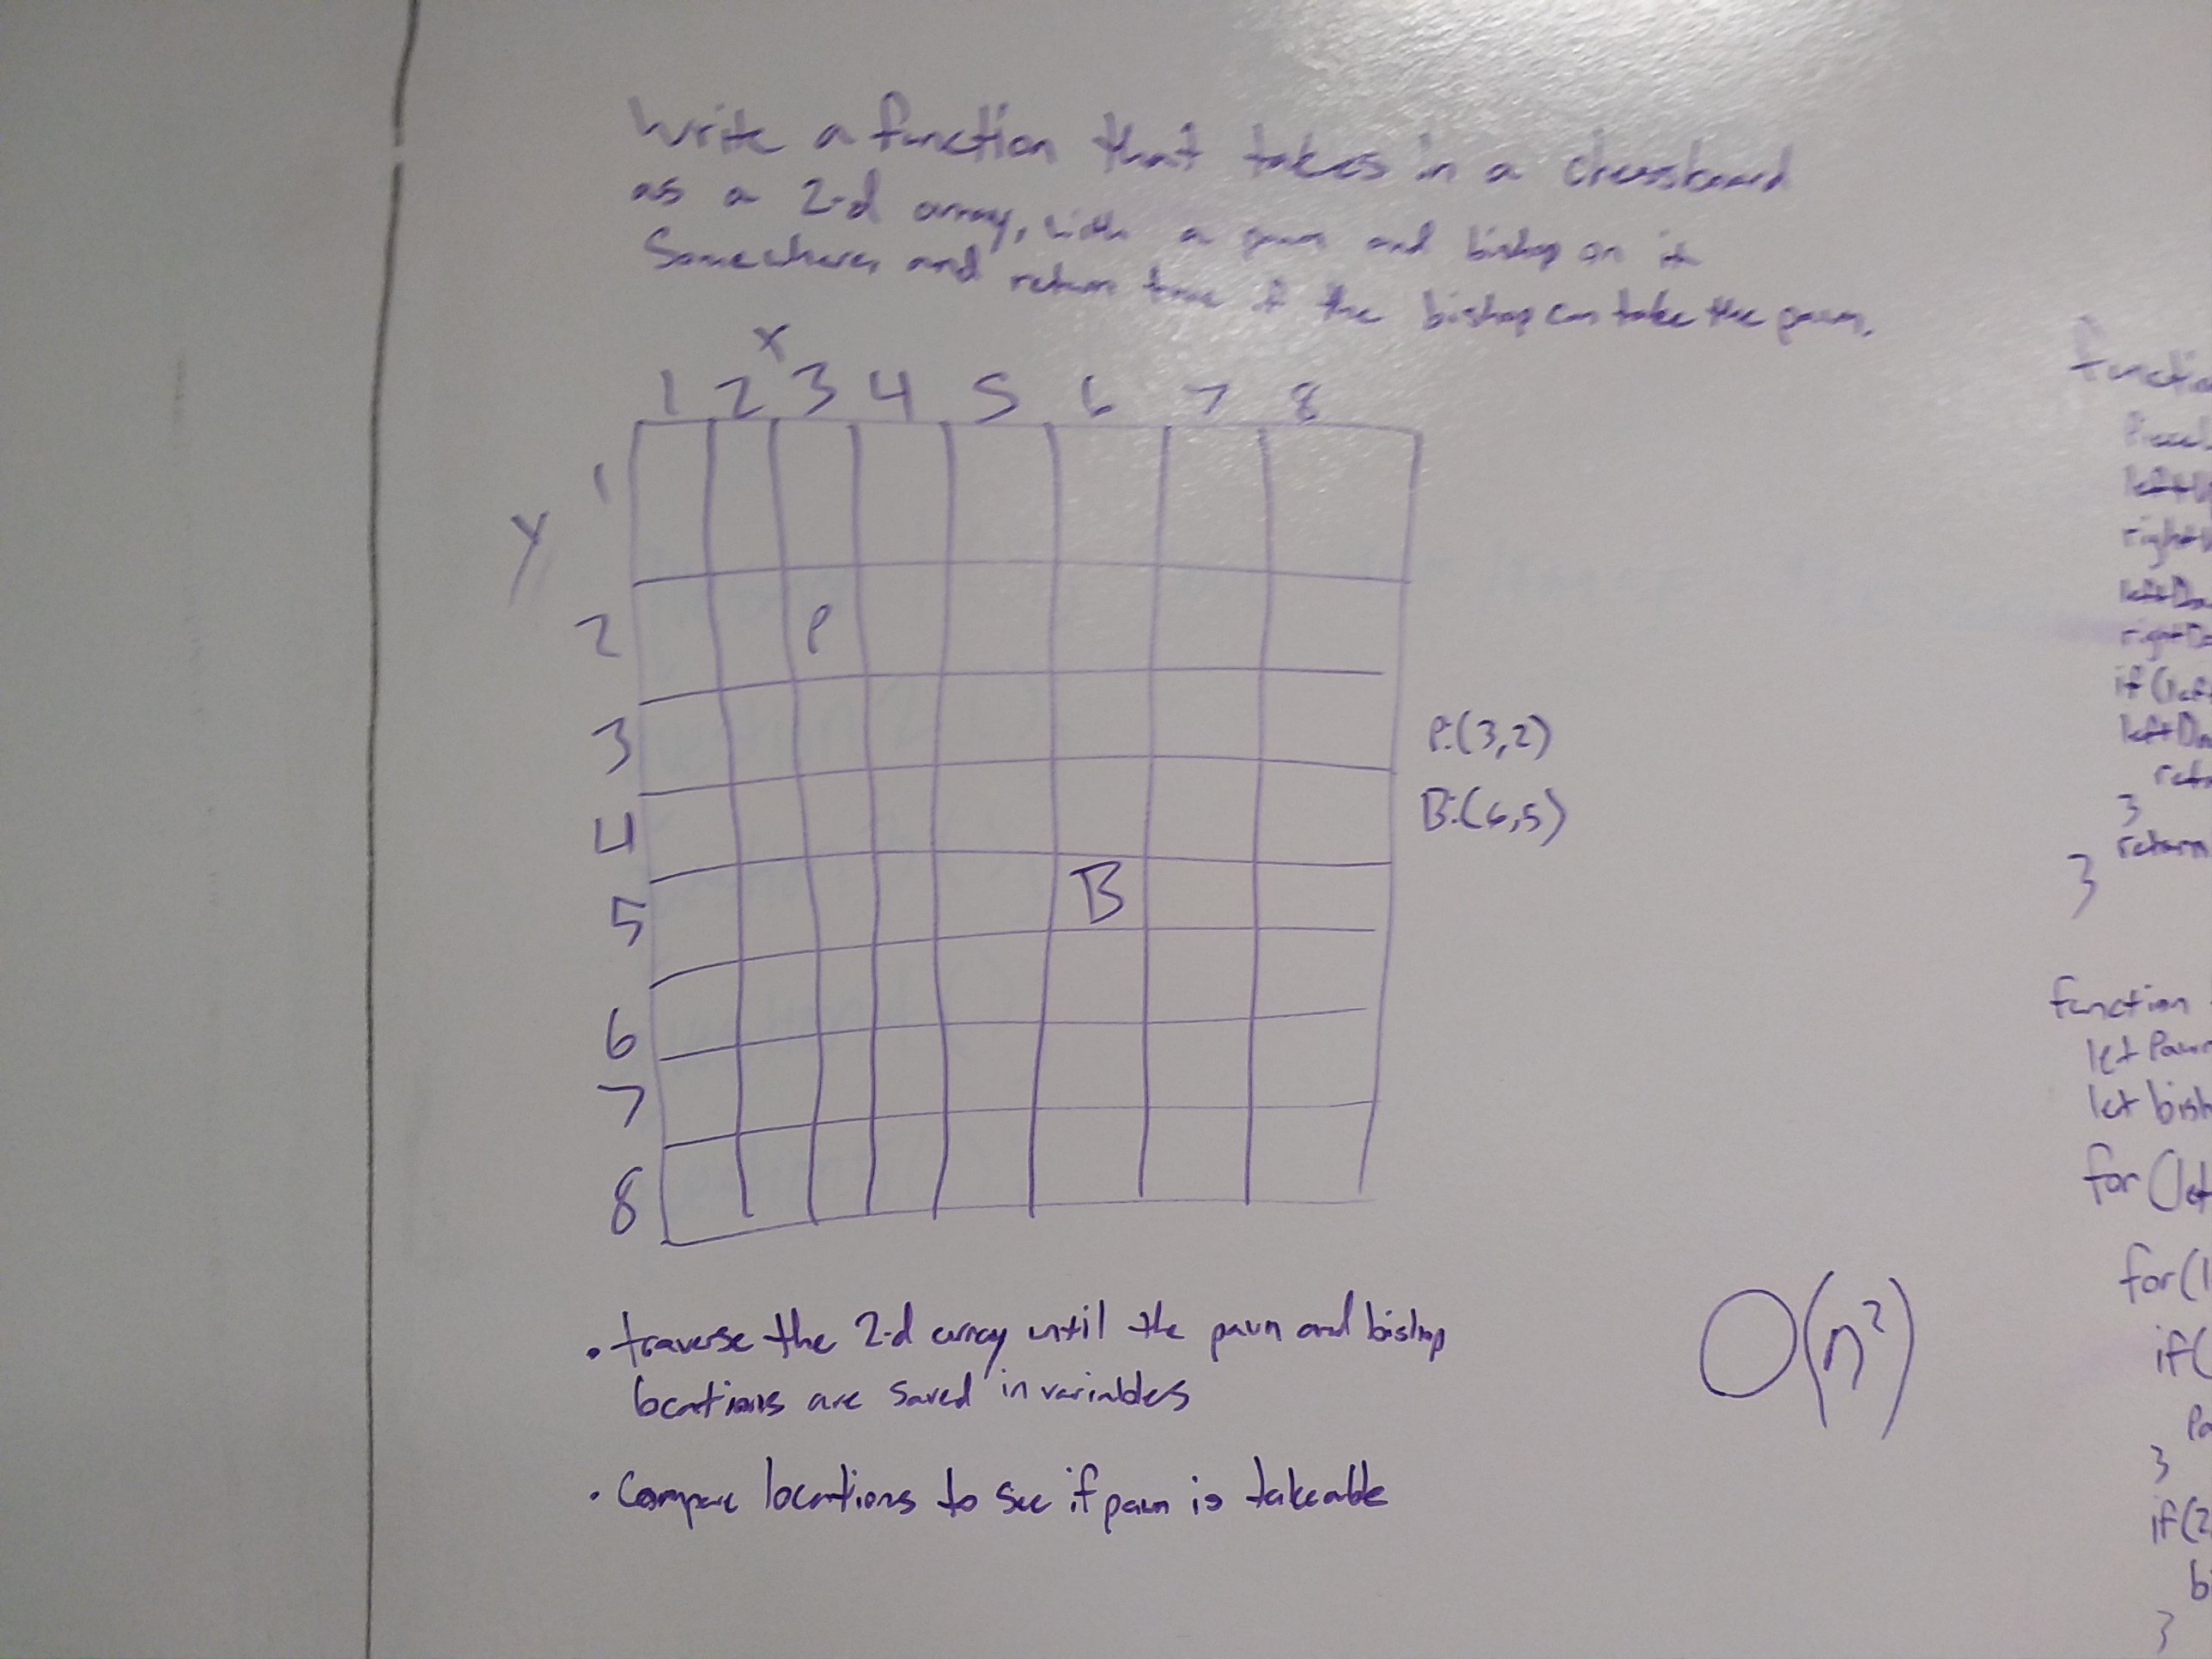 Write a function that takes in a chessboard
as a 2-d array, with a pawn and bishop on it
Somewhere, and return true if the bishop can take the pawn.
X
1 2 3 4 5 6 7 8
Y
1
2 P
3
4
5 B
6
7
8
P:(3,2)
B:(6,5)
• traverse the 2-d array until the pawn and bishop
locations are saved in variables
• Compare locations to see if pawn is takeable
O(n²)
left
right
left
right
if (
left
}
return
}
function
let Pawn
let bish
for (let
for (
if (
}
if (2
bi
}